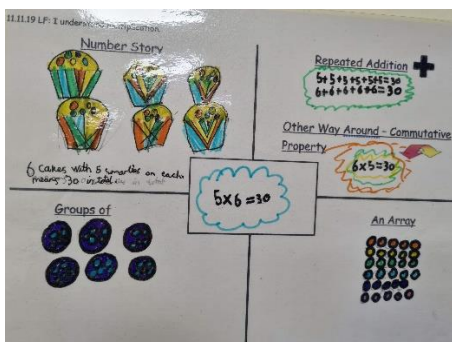 11.11.19 LF: I understand multiplication.
Number Story
6 cakes with 5 smarties on each
means 30 in total
Repeated Addition
5+5+5+5+5+5=30
6+6+6+6+6=30
Other Way Around - Commutative
Property
6x5=30
5x6=30
Groups of
An Array